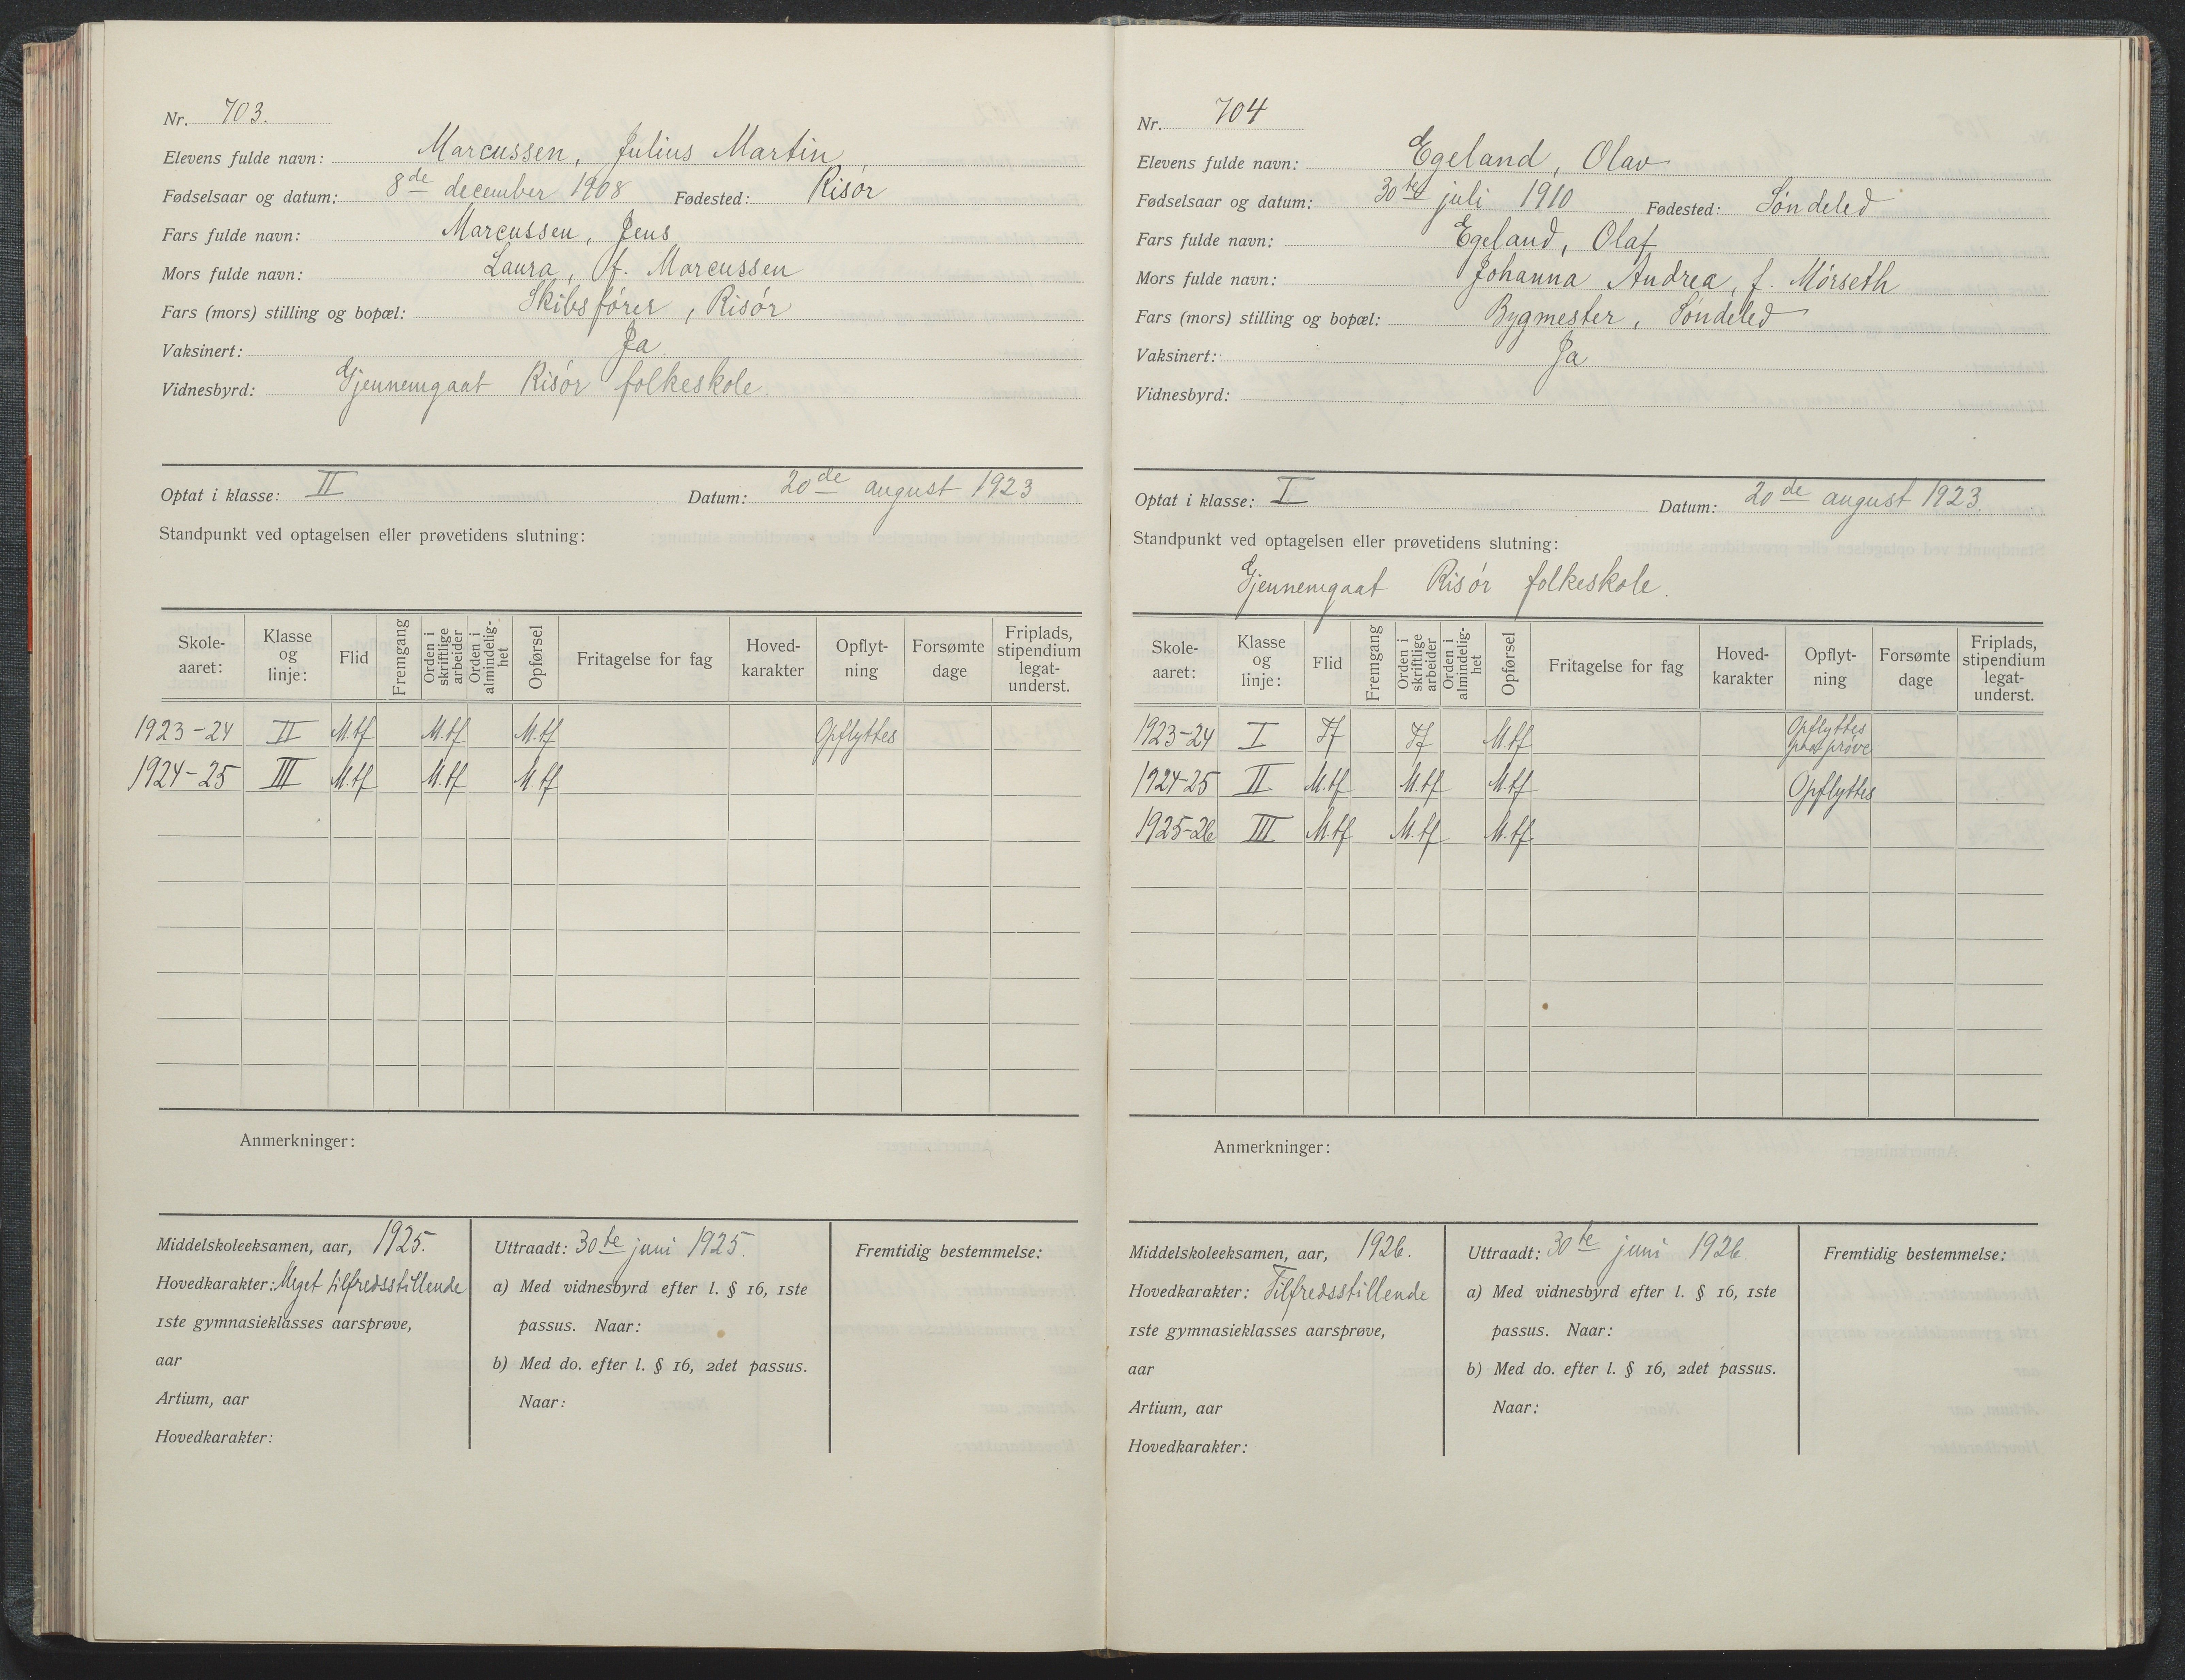 Nr. 703.
Elevens fulde navn: Marcussen, Julius Martin
Fødselsaar og datum: 8de december 1908 Fødested: Risør
Fars fulde navn: Marcussen, Jens
Mors fulde navn: Laura, f. Marcussen
Fars (mors) stilling og bopæl: Skibsfører, Risør
Vaksinert: Ja
Vidnesbyrd: Gjennemgaat Risør folkeskole.
Optat i klasse: II Datum: 20de august 1923
Standpunkt ved optagelsen eller prøvetidens slutning:
Skole-aaret: Klasse og linje: Flid Fremgang Orden i skriftlige arbeider Orden i almindelig-het Opførsel Fritagelse for fag Hoved-karakter Opflyt-ning Forsømte dage Friplads, stipendium legat-underst.
1923-24 II M.tf M.tf M.tf Opflyttes
1924-25 III M.tf M.tf M.tf
Anmerkninger:
Middelskoleeksamen, aar, 1925.
Hovedkarakter: Meget tilfredsstillende
1ste gymnasieklasses aarsprøve,
aar
Artium, aar
Hovedkarakter:
Uttraadt: 30te juni 1925.
a) Med vidnesbyrd efter l. § 16, 1ste
passus. Naar:
b) Med do. efter l. § 16, 2det passus.
Naar:
Fremtidig bestemmelse:
Nr. 704
Elevens fulde navn: Egeland, Olav
Fødselsaar og datum: 30te juli 1910 Fødested: Søndeled
Fars fulde navn: Egeland, Olaf
Mors fulde navn: Johanna Andrea, f. Mørseth
Fars (mors) stilling og bopæl: Bygmester, Søndeled
Vaksinert: Ja
Vidnesbyrd:
Optat i klasse: I Datum: 20de august 1923.
Standpunkt ved optagelsen eller prøvetidens slutning:
Gjennemgaat Risør folkeskole.
Skole-aaret: Klasse og linje: Flid Fremgang Orden i skriftlige arbeider Orden i almindelig-het Opførsel Fritagelse for fag Hoved-karakter Opflyt-ning Forsømte dage Friplads, stipendium legat-underst.
1923-24 I Tf Tf M.tf Opflyttes paa prøve
1924-25 II M.tf M.tf M.tf Opflyttes
1925-26 III M.tf M.tf M.tf
Anmerkninger:
Middelskoleeksamen, aar, 1926.
Hovedkarakter: Tilfredsstillende
1ste gymnasieklasses aarsprøve,
aar
Artium, aar
Hovedkarakter:
Uttraadt: 30te juni 1926.
a) Med vidnesbyrd efter l. § 16, 1ste
passus. Naar:
b) Med do. efter l. § 16, 2det passus.
Naar:
Fremtidig bestemmelse: